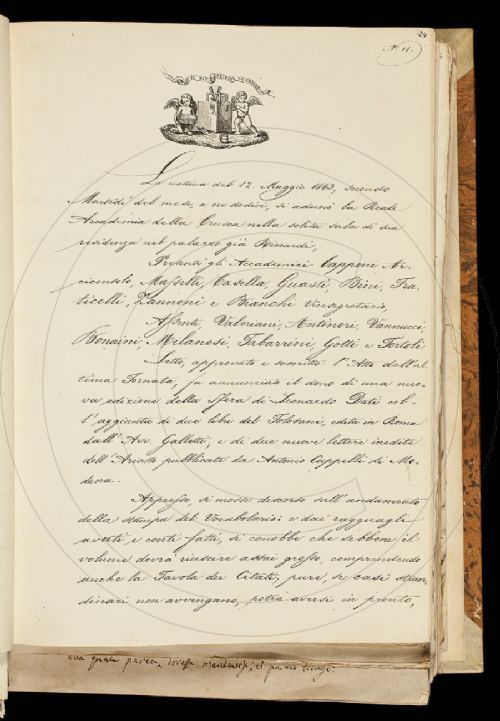 24
N. 11.
La mattina del 12. Maggio 1863, secondo
Martedì del mese, a ore dodici, si adunò la Reale
Accademia della Crusca nella solita sala di sua
residenza nel palazzo già Riccardi,
Presenti gli Accademici Capponi Ar-
ciconsolo, Masselli, Casella, Guasti, Bini, Fra-
ticelli, Zannoni e Bianchi Vicesegretario,
Assenti, Valeriani, Antinori, Vannucci,
Bonaini, Milanesi, Tabarrini, Gotti e Tortoli.
Letto, approvato e soscritto l'Atto dell'ul-
tima Tornata, fu annunciato il dono di una nuo-
va edizione della Sfera di Leonardo Dati col-
l'aggiunta di due libri del Tolosani, edita in Roma
dall'Avv. Galletti, e di due nuove lettere inedite
dell'Ariosto pubblicate da Antonio Cappelli di Mo-
dena.
Appresso, si mosse discorso sull'andamento
della stampa del Vocabolario: e dai ragguagli
avuti e conti fatti, si conobbe che sebbene il
volume dovrà riuscire assai grosso, comprendendo
anche la Tavola dei Citati, pure, se casi straor-
dinari non avvengano, potrà aversi in pronto,